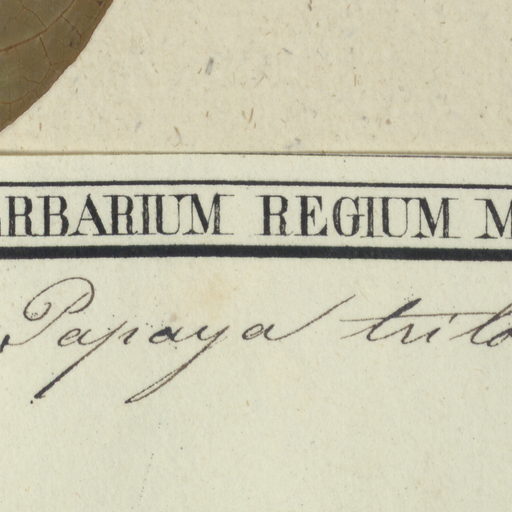 ERBARIUM REGIUM M
Papaya trilo